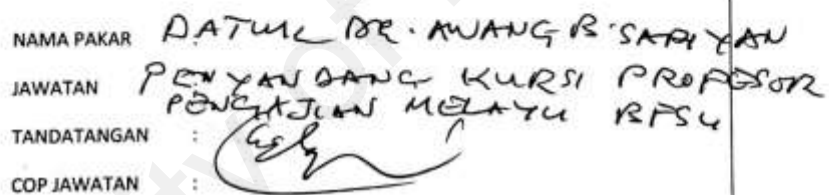 NAMA PAKAR DATUK DR. AWANG B. SARIYAN
JAWATAN PENYANDANG KURSI PROFESOR
PENGAJIAN MELAYU BFSU
TANDATANGAN :
COP JAWATAN :